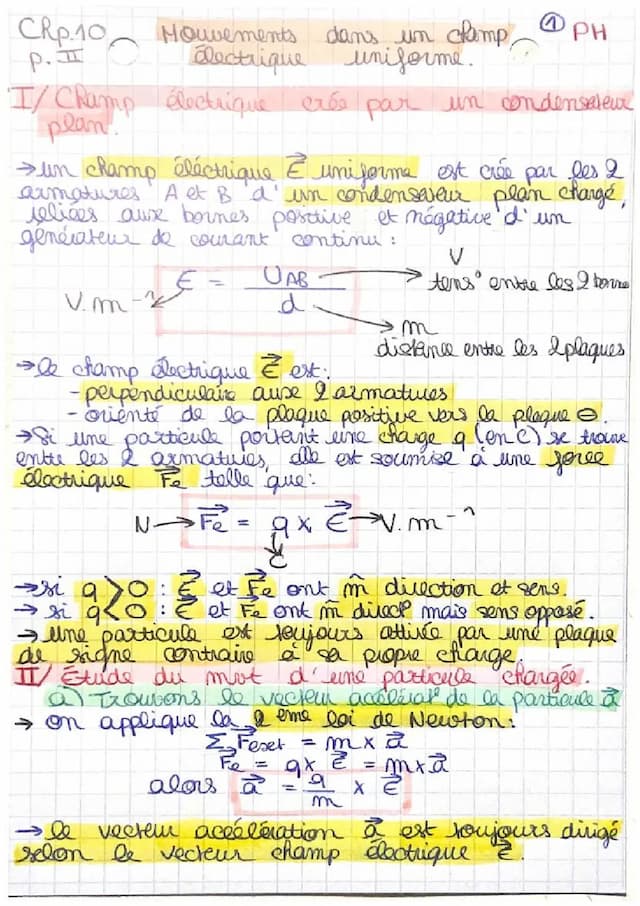 Chp.10 Mouvements dans un champ ① PH
p. II électrique uniforme.
I/ Champ électrique crée par un condensateur
plan.
→ un champ éléctrique E⃗ uniforme est crée par les 2
armatures A et B d'un condensateur plan chargé,
reliées aux bornes positive et négative d'un
générateur de courant continu :
V
E = UAB / d → tens° entre les 2 bornes
V.m⁻¹
m
distance entre les 2 plaques
→ le champ électrique E⃗ est :
- perpendiculaire aux 2 armatures
- orienté de la plaque positive vers la plaque ⊖.
→ Si une particule portant une charge q (en C) se trouve
entre les 2 armatures, elle est soumise à une force
électrique F⃗e telle que :
N → F⃗e = q x E⃗ → V.m⁻¹
C
→ si q > 0 : E⃗ et F⃗e ont m̂ direction et sens.
→ si q < 0 : E⃗ et F⃗e ont m̂ direct° mais sens opposé.
→ une particule est toujours attirée par une plaque
de signe contraire à sa propre charge
II/ Étude du mvt d'une particule chargée.
a) Trouvons le vecteur accélérat° de la particule a⃗
→ on applique la 2ème loi de Newton :
Σ F⃗ext = m x a⃗
F⃗e = q x E⃗ = m x a⃗
alors a⃗ = q/m x E⃗
→ le vecteur accélération a⃗ est toujours dirigé
selon le vecteur champ électrique E⃗.